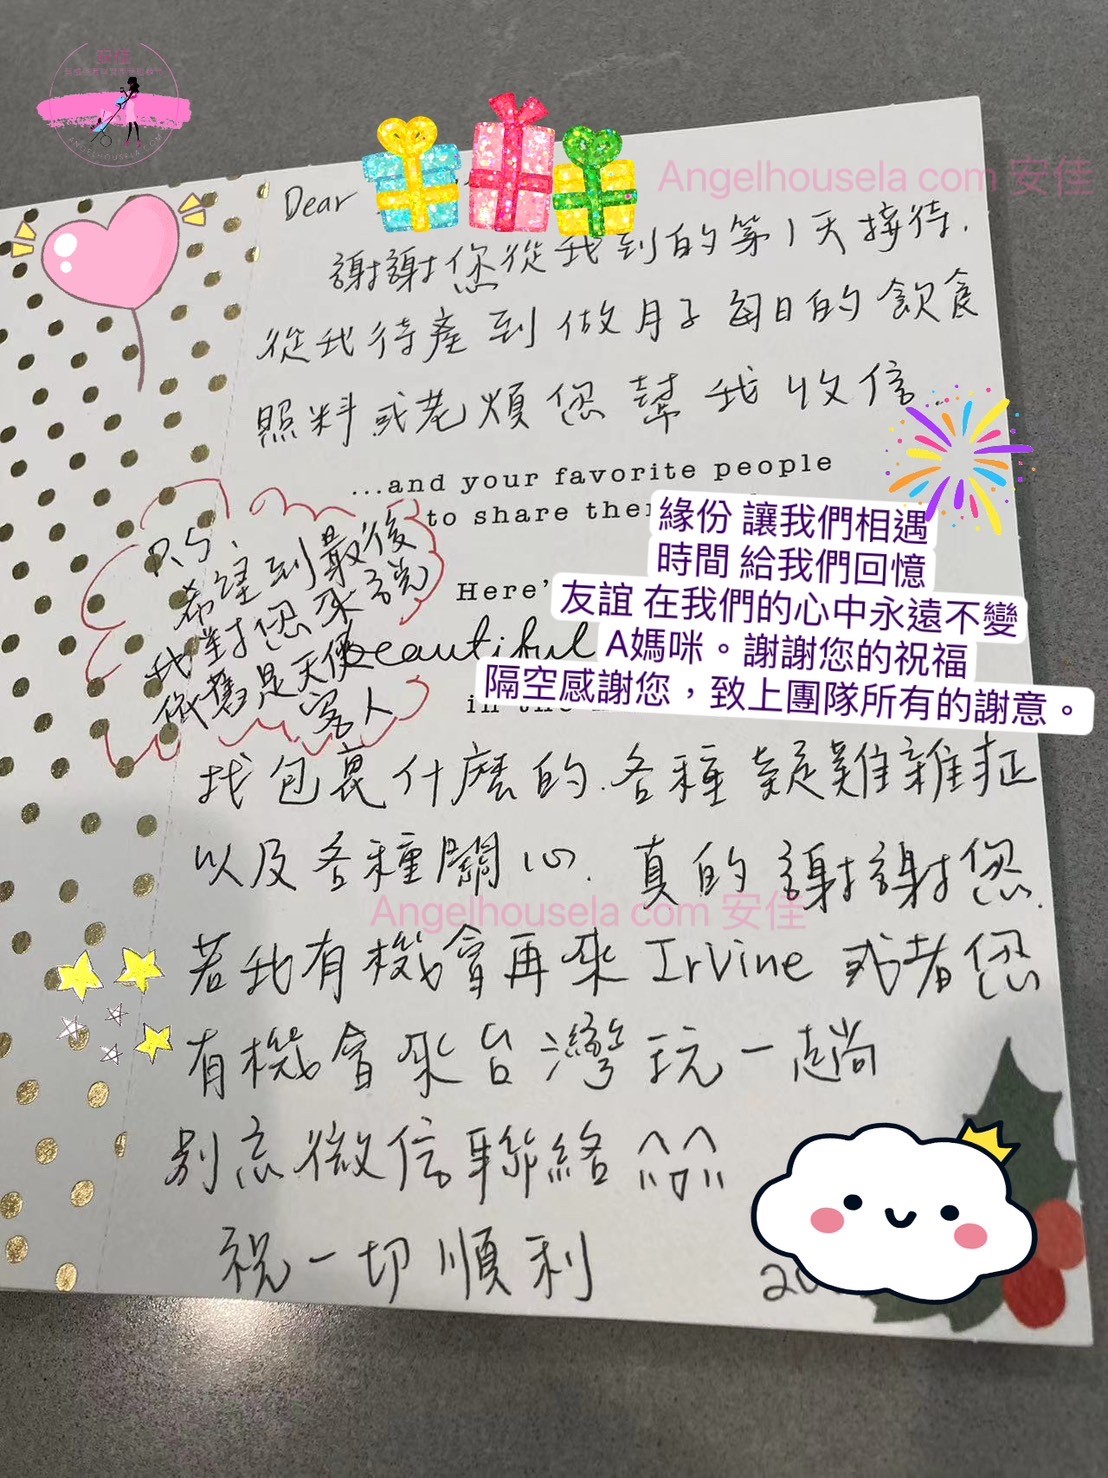 安佳
ANGELSHOUSELA.COM
Angelhousela com 安佳
Dear
謝謝您從我到的第1天接待.
從我待產到做月子每日的飲食
照料或老煩您幫我收信
...and your favorite people
to share the
P.S.
希望到最後
我對您來說
依舊是天使
客人
Here'
beautiful
in the
緣份 讓我們相遇
時間 給我們回憶
友誼 在我們的心中永遠不變
A媽咪。謝謝您的祝福
隔空感謝您，致上團隊所有的謝意。
找包裹什麼的.各種疑難雜症
以及各種關心. 真的謝謝您.
Angelhousela com 安佳
若我有機會再來Irvine 或者您
有機會來台灣玩一趟
別忘微信聯絡
祝一切順利
20